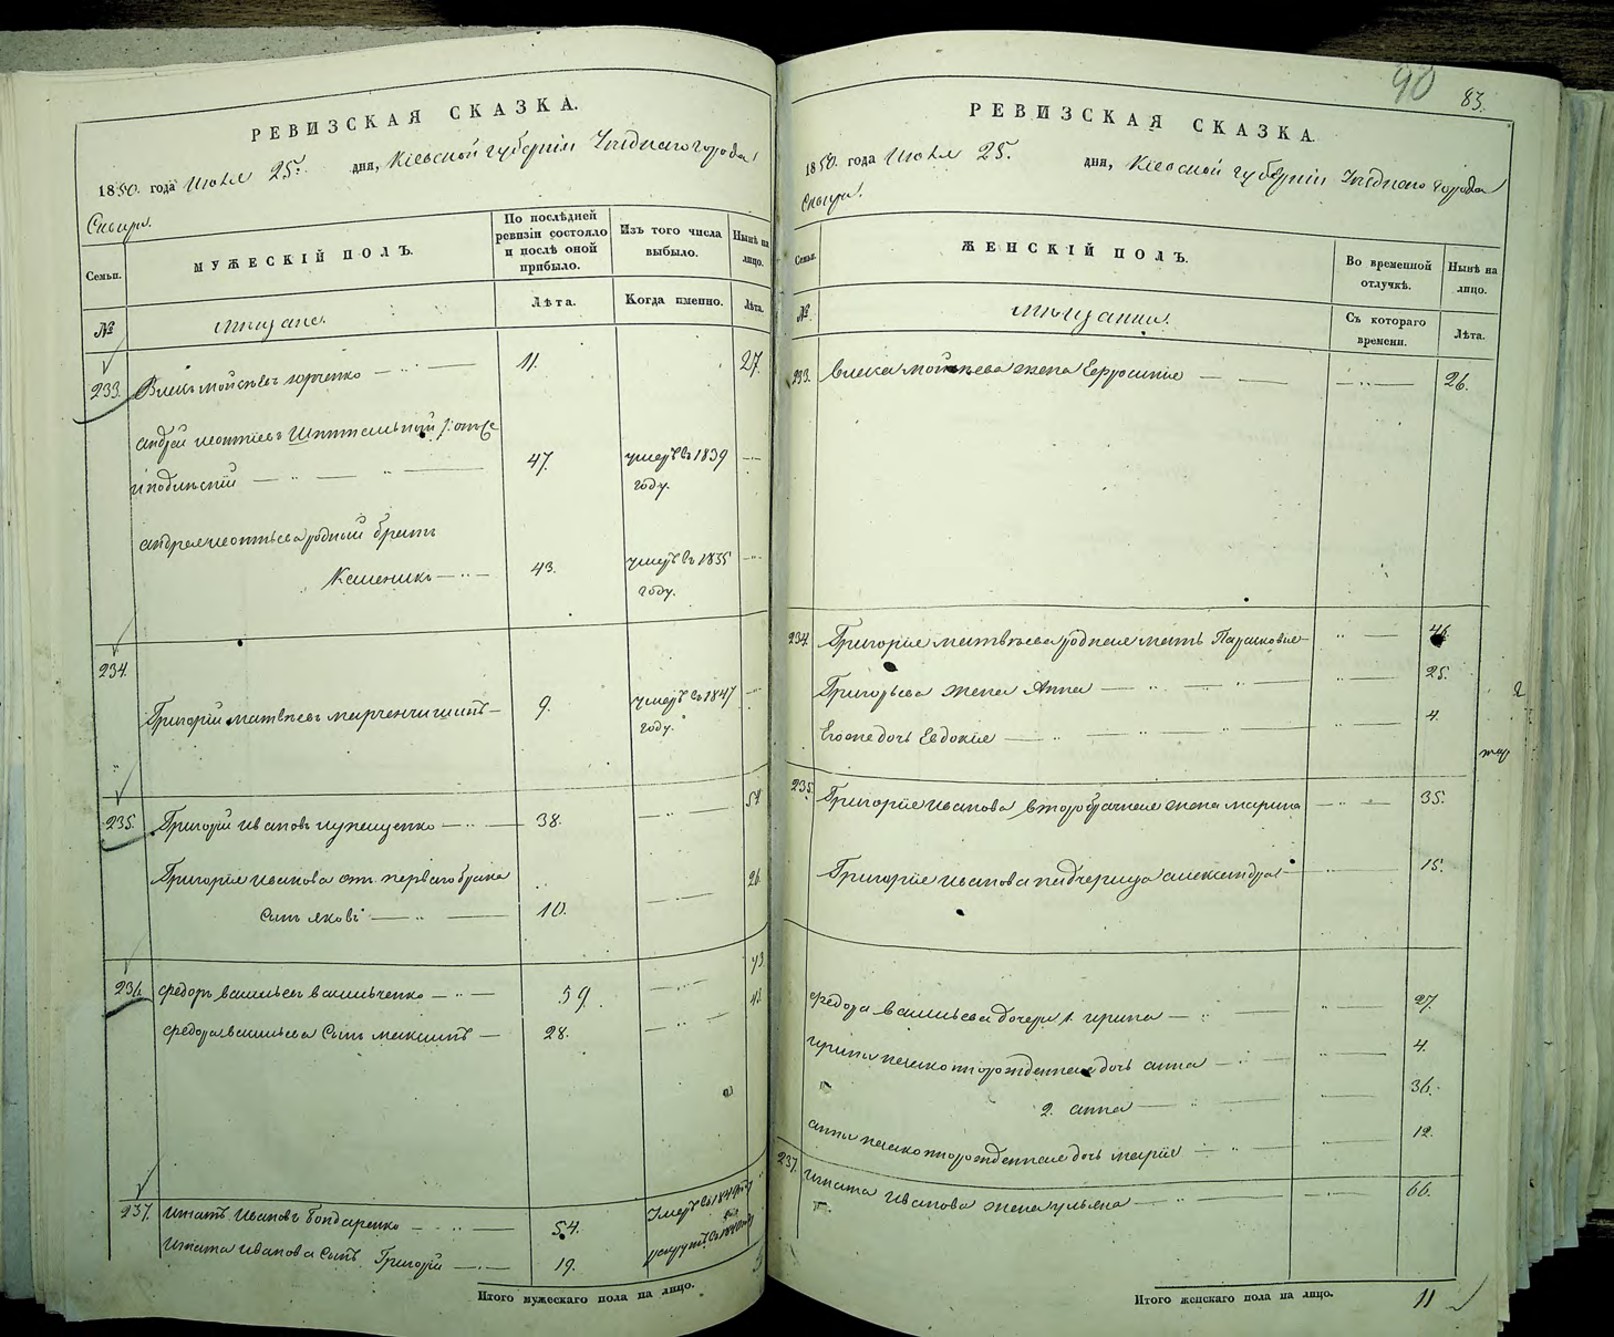 РЕВИЗСКАЯ СКАЗКА.
1850. года Июля 25. дня, Кіевской губерніи Уѣзднаго города
Сквиры.
Семьи.
МУЖЕСКІЙ ПОЛЪ.
По послѣдней ревизіи состояло и послѣ оной прибыло.
Изъ того числа выбыло.
Нынѣ на лицо.
№
мѣщане.
Лѣта.
Когда именно.
Лѣта.
233. Моисѣевъ Юрченко 11. 27.
Андрей Леонтіевъ
47. умеръ въ 1839
году.
Андрея Леонтьева родный братъ
43. умеръ въ 1835
году.
234.
Григорій Матвѣевъ 9. умеръ въ 1847
году.
235. Григорій Ивановъ 38. 54
Григорія Иванова отъ перваго брака 26.
Сынъ Яковъ 10.
236. Федоръ Васильевъ Васильченко 59. 73
Федора Васильева Сынъ Максимъ 28. 43
237. Игнатъ Ивановъ Бондаренко 54. Умеръ въ
Игната Иванова Сынъ Григорій 19.
Итого мужескаго пола на лицо.
90
83.
РЕВИЗСКАЯ СКАЗКА.
1850. года Июля 25. дня, Кіевской губерніи Уѣзднаго города
Сквиры.
Семьи.
ЖЕНСКІЙ ПОЛЪ.
Во временной отлучкѣ.
Нынѣ на лицо.
№
мѣщанки.
Съ котораго времени.
Лѣта.
233. Моисѣева жена Ефросинія 26.
234. Григорія Матвѣева родная мать Парасковія 46.
Григорьева жена Анна 25.
Его же дочь Евдокія 4.
235. Григорія Иванова второбрачная жена Марина 35.
Григорія Иванова падчерица Александра 15.
Федора Васильева дочери 1. Ирина 27.
Ирины незаконнорожденная дочь Анна 4.
2. Анна 36.
Анны незаконнорожденная дочь Марія 12.
237. Игната Иванова жена Ульяна 66.
Итого женскаго пола на лицо. 11